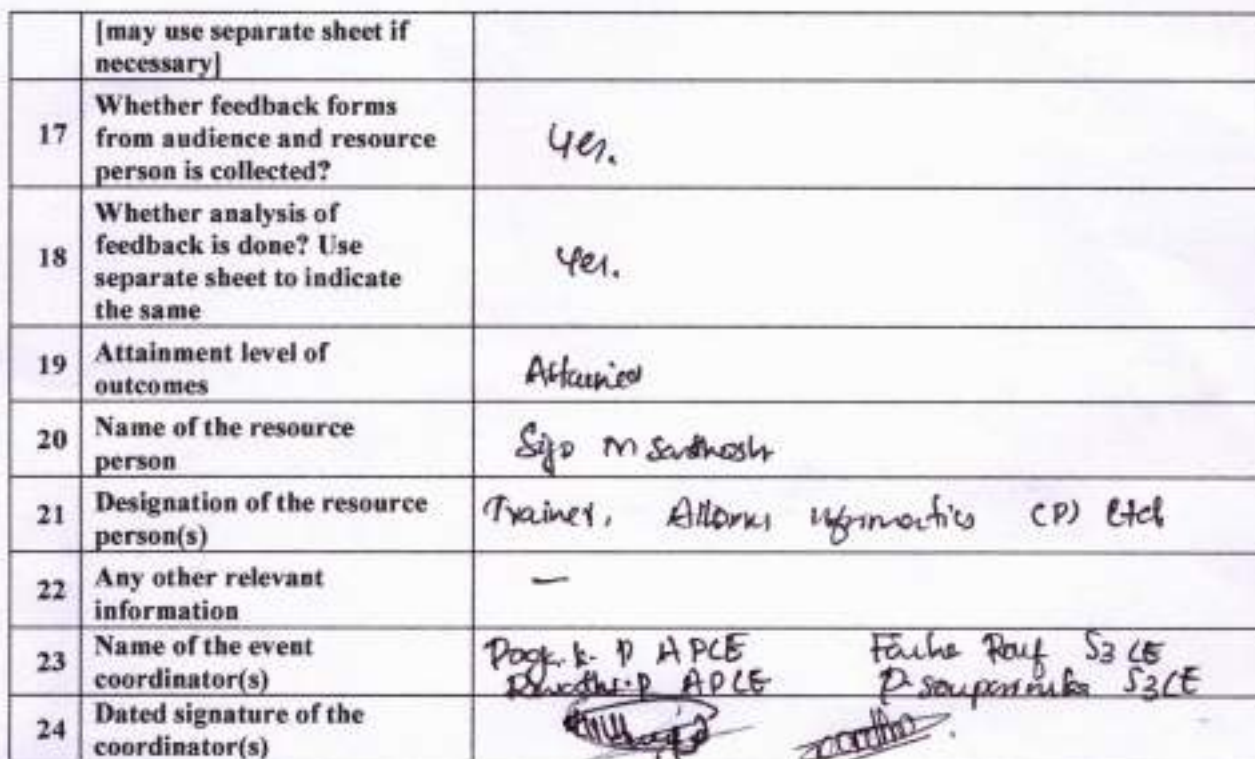 [may use separate sheet if
necessary]
17
Whether feedback forms
from audience and resource
person is collected?
Yes.
18
Whether analysis of
feedback is done? Use
separate sheet to indicate
the same
Yes.
19
Attainment level of
outcomes
Attained
20
Name of the resource
person
Sijo M Santhosh
21
Designation of the resource
person(s)
Trainer, informatics (P) Ltd
22
Any other relevant
information
—
23
Name of the event
coordinator(s)
P APCE S3 CE
APCE S3 CE
24
Dated signature of the
coordinator(s)